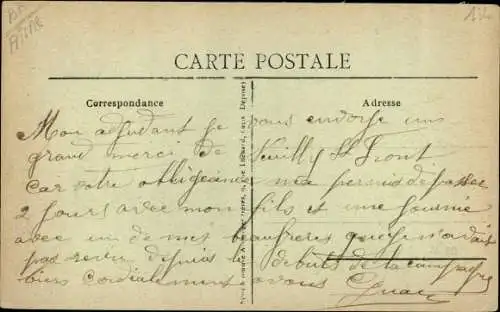 CARTE POSTALE
Correspondance
Adresse
Mon adjudant je vous envoye un
grand merci de Neuilly St Front
car votre obligeance m'a permis de passer
2 jours avec mon fils et une journée
avec un de mes beaufreres que je n'avait
pas revu depuis le debut de la campagne
bien Cordialement a vous